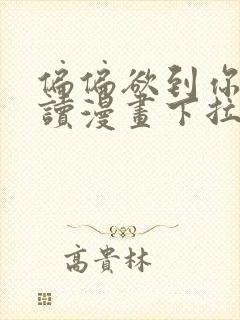 偏偏欲到你
讀漫畫下拉
高貴林